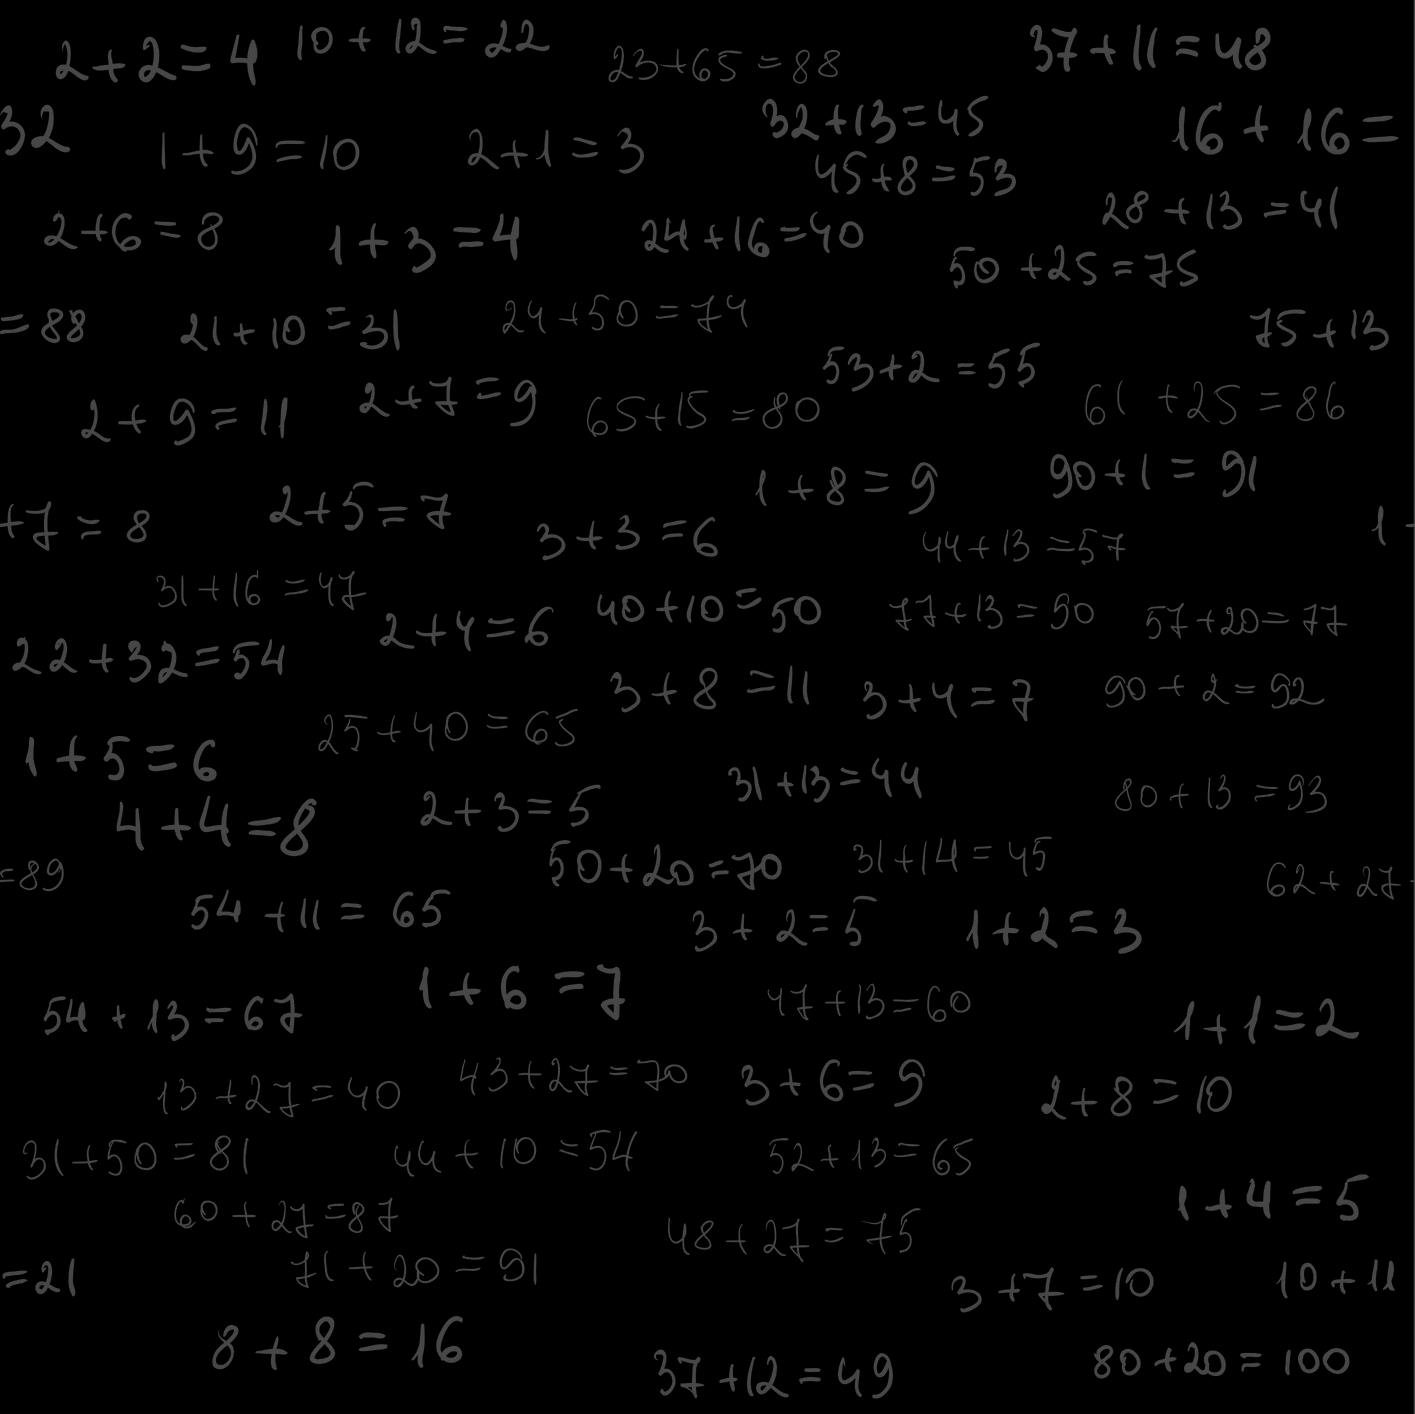 2+2=4
10+12=22
23+65=88
37+11=48
32
1+9=10
2+1=3
32+13=45
16+16=
45+8=53
2+6=8
1+3=4
24+16=40
28+13=41
50+25=75
=88
21+10=31
24+50=74
75+13
53+2=55
2+9=11
2+7=9
65+15=80
61+25=86
1+8=9
90+1=91
+7=8
2+5=7
3+3=6
44+13=57
1-
31+16=47
2+4=6
40+10=50
77+13=90
57+20=77
22+32=54
3+8=11
3+4=7
90+2=92
1+5=6
25+40=65
31+13=44
80+13=93
4+4=8
2+3=5
=89
50+20=70
31+14=45
62+27-
54+11=65
3+2=5
1+2=3
54+13=67
1+6=7
47+13=60
1+1=2
13+27=40
43+27=70
3+6=9
2+8=10
31+50=81
44+10=54
52+13=65
60+27=87
1+4=5
48+27=75
=21
71+20=91
3+7=10
10+11
8+8=16
37+12=49
80+20=100